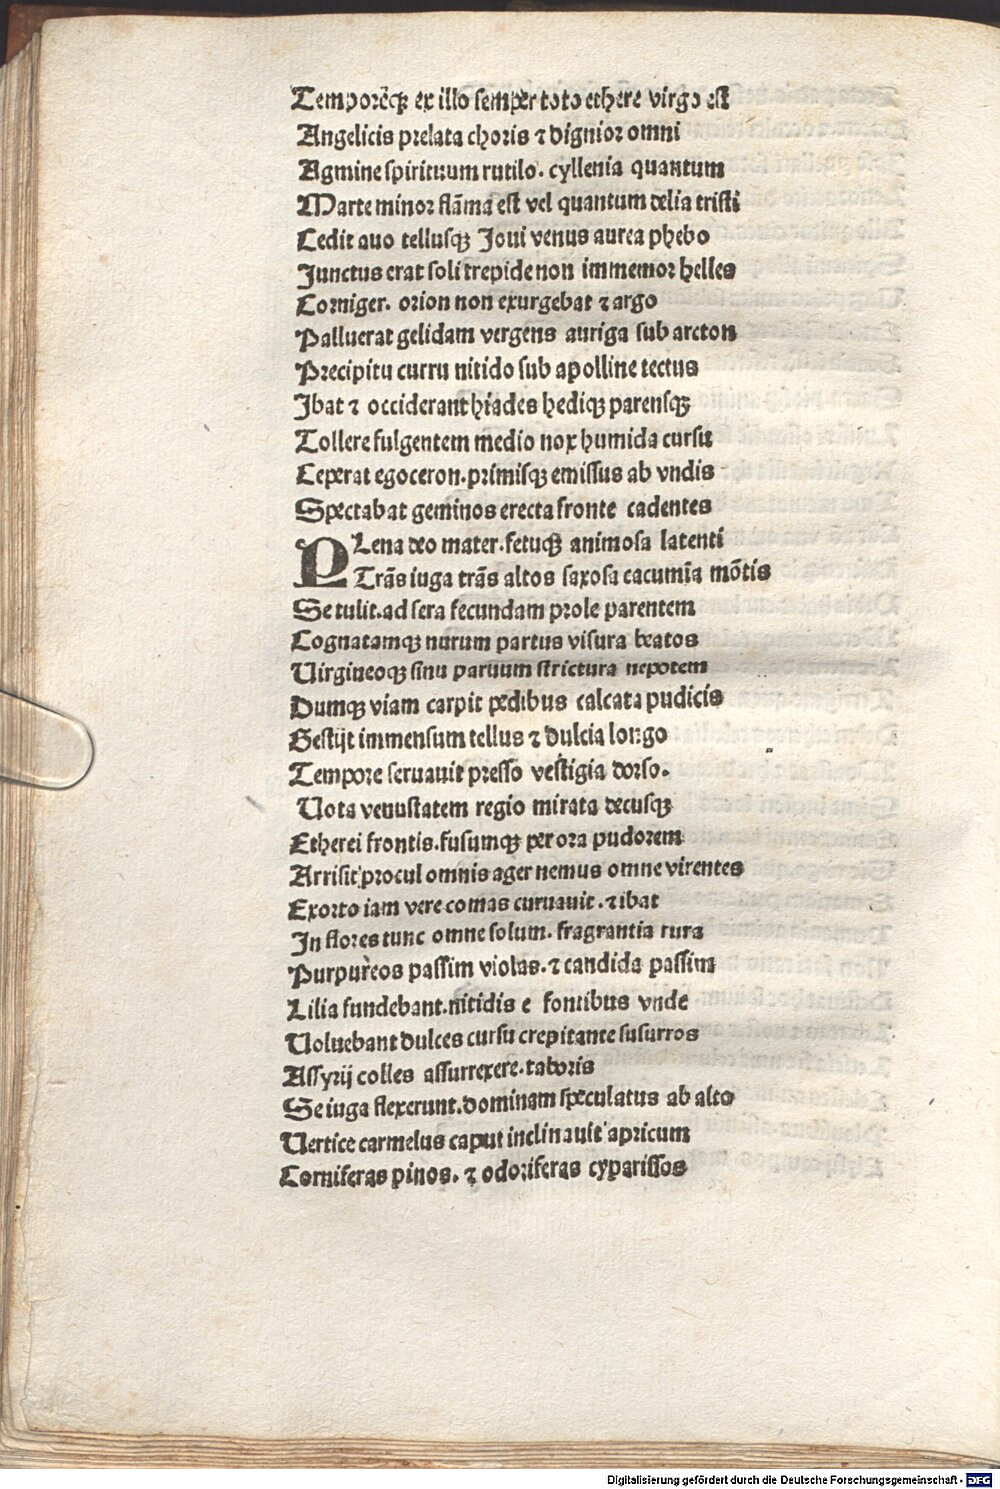 Temporēq́ꝫ ex illo semper toto ethere virgo est
Angelicis prelata choris ⁊ dignior omni
Agmine spirituum rutilo. cyllenia quantum
Marte minor flāma est vel quantum delia tristi
Cedit auo tellusqꝫ Joui venus aurea phebo
Junctus erat soli trepide non immemor helles
Corniger. orion non exurgebat ⁊ argo
Palluerat gelidam vergens auriga sub arcton
Precipitu curru nitido sub apolline tectus
Ibat ⁊ occiderant hiades hediqꝫ parensqꝫ
Tollere fulgentem medio nox humida cursu
Ceperat egoceron. primisqꝫ emissus ab vndis
Spectabat geminos erecta fronte cadentes
PLena deo mater. fetuqꝫ animosa latenti
Trās iuga trās altos saxosa cacumīa mōtis
Se tulit. ad sera fecundam prole parentem
Cognatamqꝫ nurum partus visura beatos
Uirgineoqꝫ sinu paruum strictura nepotem
Dumqꝫ viam carpit pedibus calcata pudicis
Gestijt immensum tellus ⁊ dulcia longo
Tempore seruauit presso vestigia dorso.
Uota venustatem regio mirata decusqꝫ
Etherei frontis. fusumqꝫ per ora pudorem
Arrisit procul omnis ager nemus omne virentes
Exorto iam vere comas curuauit. ⁊ ibat
In flores tunc omne solum. fragrantia rura
Purpureos passim violas. ⁊ candida passim
Lilia fundebant. nitidis e fontibus vnde
Uoluebant dulces cursu crepitante susurros
Assyrij colles assurrexere. taboris
Se iuga flexerunt. dominam speculatus ab alto
Uertice carmelus caput inclinauit apricum
Corniferas pinos. ⁊ odoriferas cyparissos
Digitalisierung gefördert durch die Deutsche Forschungsgemeinschaft - DFG